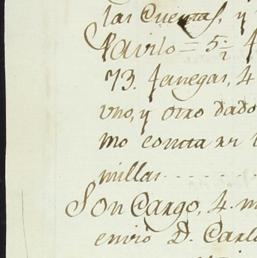 las Cuentas, y
Pavilo = 5½
73. fanegas, 4
uno, y otro dado
mo consta
millas
Son Cargo, 4. m
envio D. Carl